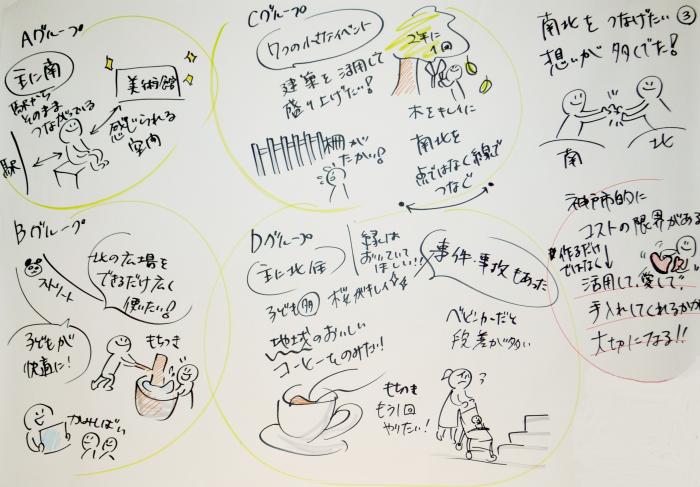 Aグループ
主に南
駅から
そのまま
つながっている
美術館
感じられる
空間
駅
Cグループ
7つの小さなイベント
建築を活用して
盛り上げたい!
2年に
1回
木をキレイに
柵が
たかい!
南北を
点ではなく線で
つなぐ
南北をつなげたい
③
想いが多くでた!
南
北
Bグループ
北の広場を
できるだけ広く
使いたい!
ストリート
子どもが
快適に!
もちつき
かみしばい
Dグループ
主に北
緑は
おいていて
ほしい!!
事件・事故もあった
子ども多
桜がキレイ
地域のおいしい
コーヒーをのみたい!
ベビーカーだと
段差が多い
もちつき
もう1回
やりたい!
神戸市的に
コストの限界がある
作るだけ
ではなく
活用して、愛して、
手入れしてくれるかが
大切になる!!